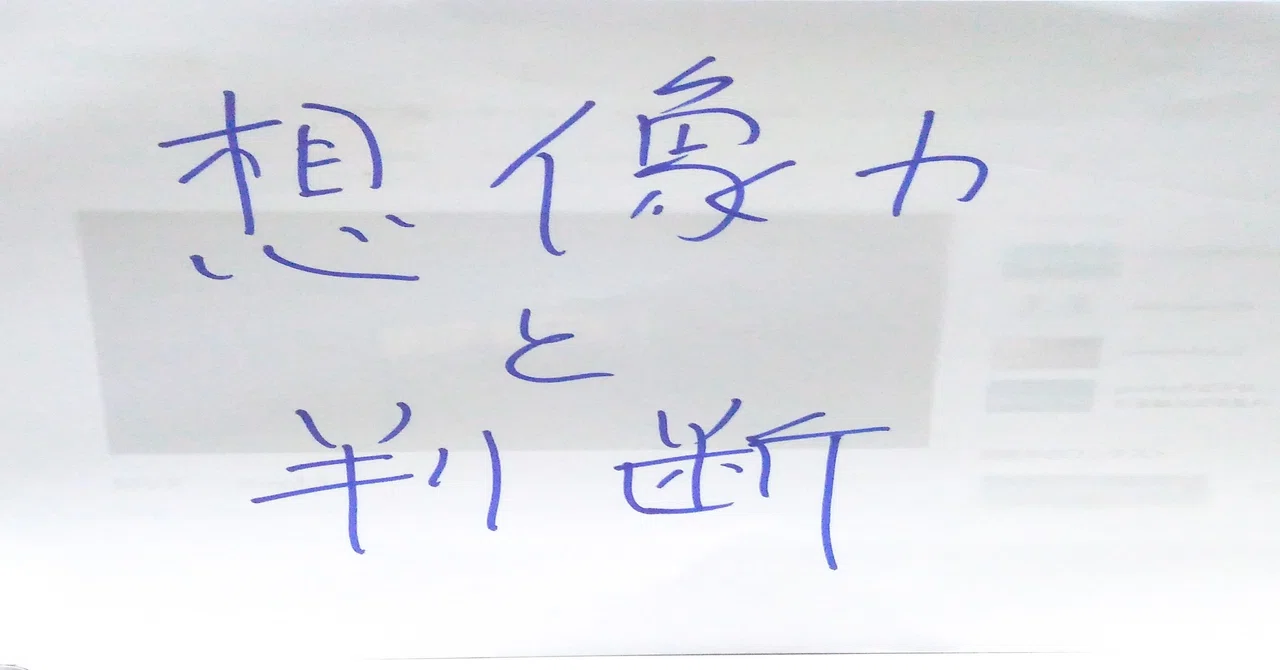 想像力
と
判断